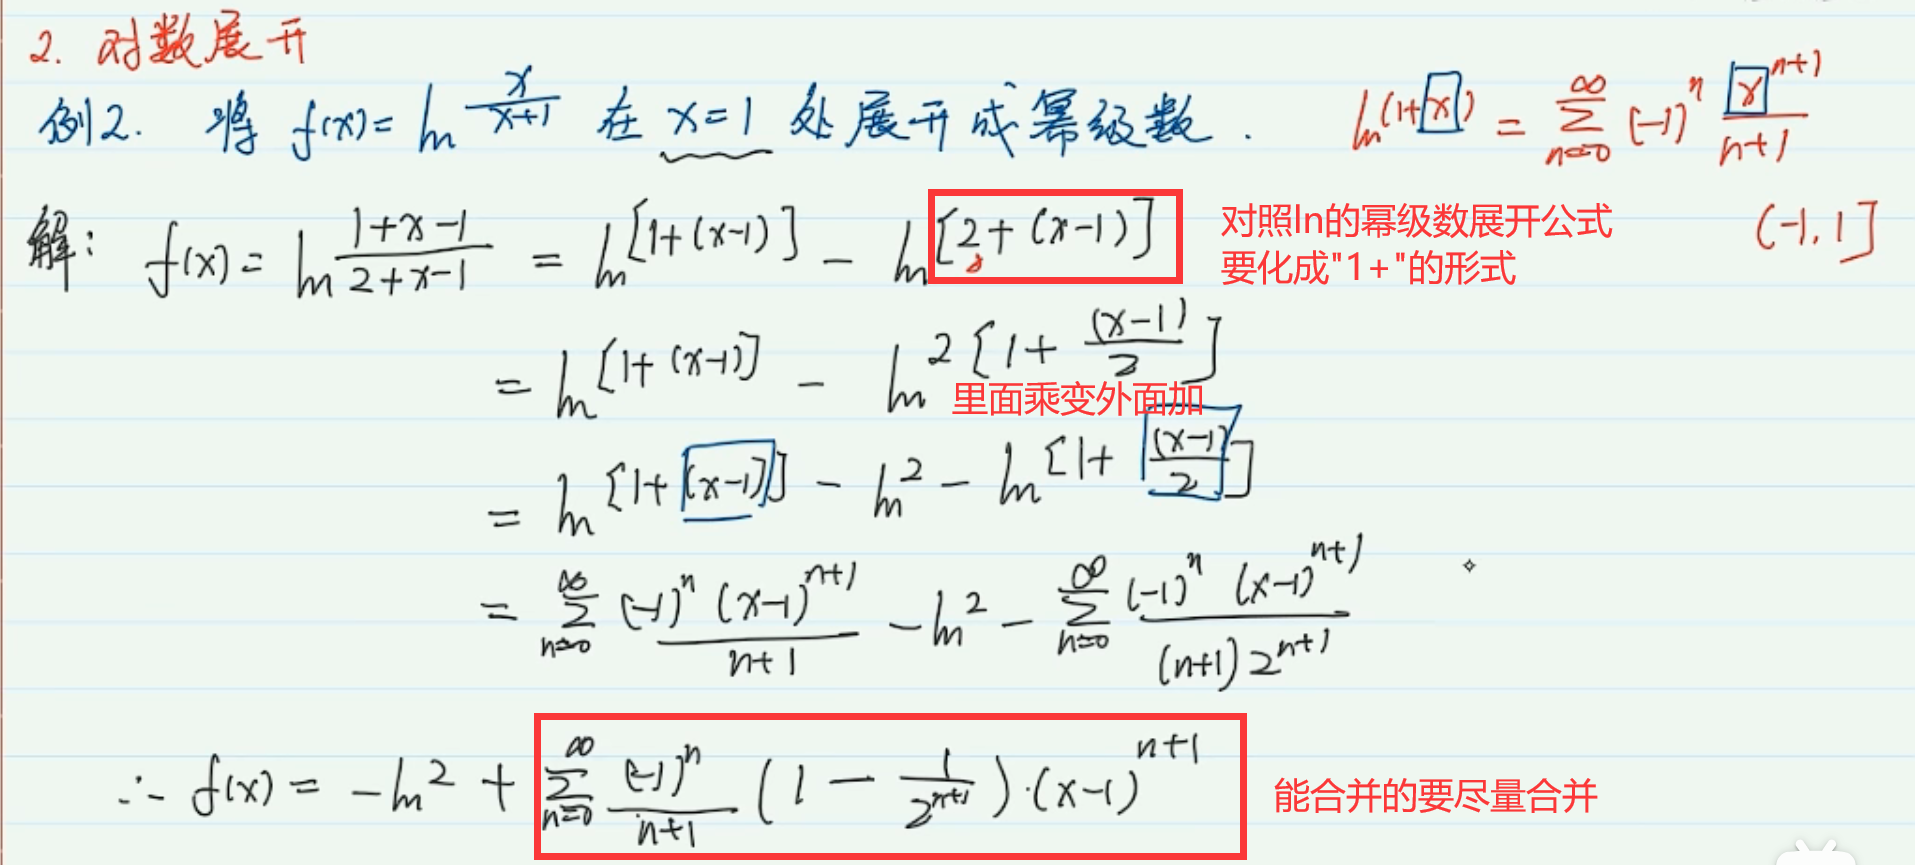 2. 对数展开
例2. 将 f(x)= ln x/(x+1) 在 x=1 处展开成幂级数.
ln(1+x) = ∑_{n=0}^{∞} (-1)^n x^{n+1}/(n+1)
(-1, 1]
解: f(x)= ln (1+x-1)/(2+x-1) = ln[1+(x-1)] - ln[2+(x-1)]
对照ln的幂级数展开公式
要化成"1+"的形式
= ln[1+(x-1)] - ln 2[1+ (x-1)/2]
里面乘变外面加
= ln[1+(x-1)] - ln2 - ln[1+ (x-1)/2]
= ∑_{n=0}^{∞} (-1)^n (x-1)^{n+1}/(n+1) - ln2 - ∑_{n=0}^{∞} (-1)^n (x-1)^{n+1}/((n+1)2^{n+1})
∴ f(x) = -ln2 + ∑_{n=0}^{∞} (-1)^n/(n+1) (1 - 1/2^{n+1})·(x-1)^{n+1}
能合并的要尽量合并